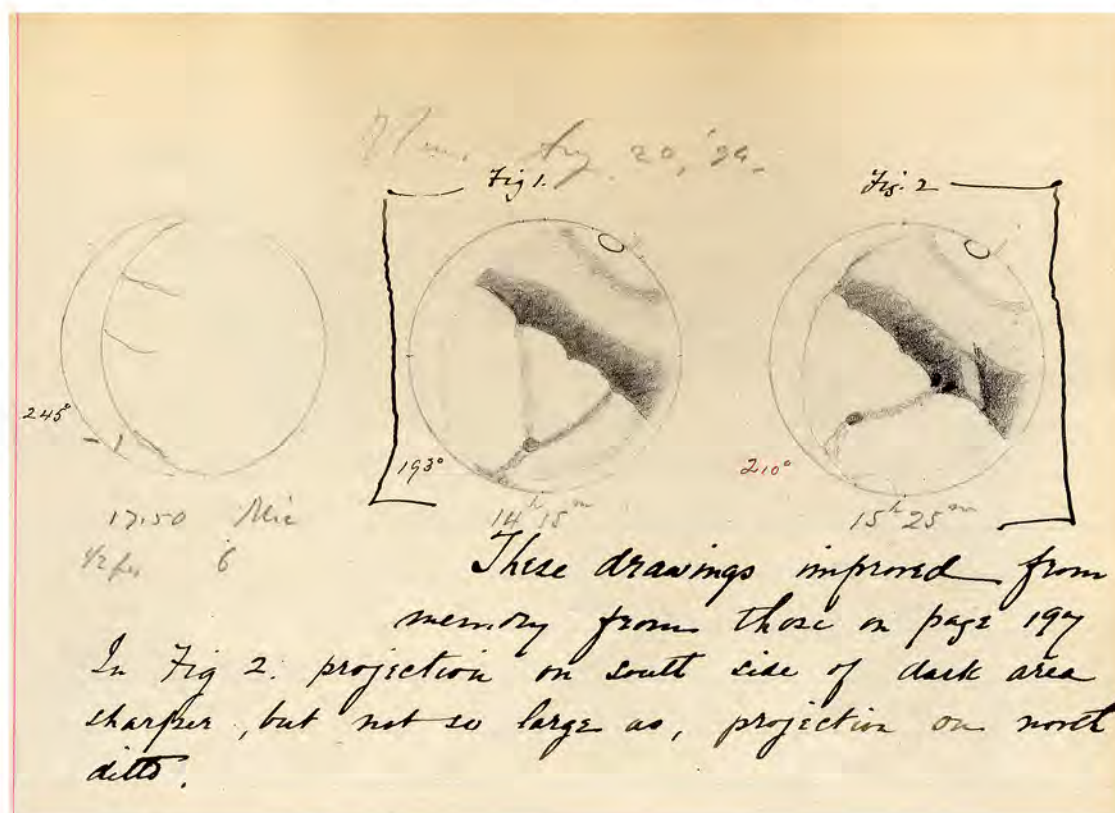 Aug. 20, '94.
Fig 1.
Fig. 2
245°
193°
210°
17.50
14h 15m
15h 25m
6
These drawings improved from
memory from those on page 197
In Fig 2. projection on south side of dark area
sharper, but not so large as, projection on north
ditto.